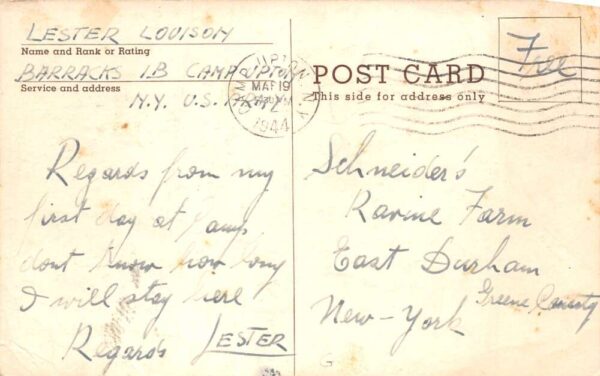 LESTER LOUISON
Name and Rank or Rating
BARRACKS 1B CAMP UPTON
Service and address
N.Y. U.S. ARMY
UPTON, N.Y.
MAR 19
1944
POST CARD
This side for address only
Free
Regards from my
first day at Camp
dont know how long
I will stay here
Regards LESTER
Schneider's
Ravine Farm
East Durham
Greene County
New-York
G